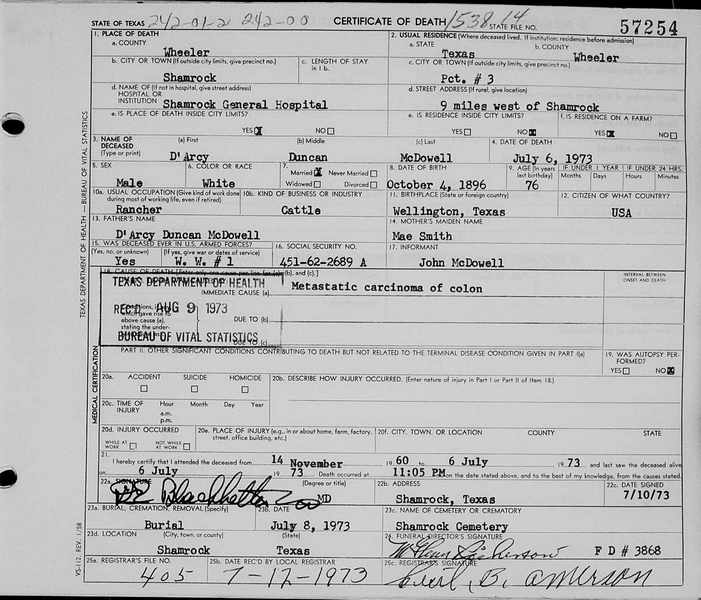 242-01-2 242-00
1538 14
STATE OF TEXAS
CERTIFICATE OF DEATH
STATE FILE NO.
57254
1. PLACE OF DEATH
a. COUNTY
Wheeler
2. USUAL RESIDENCE (Where deceased lived. If institution: residence before admission)
a. STATE
Texas
b. COUNTY
Wheeler
b. CITY OR TOWN (If outside city limits, give precinct no.)
Shamrock
c. LENGTH OF STAY
in 1 b.
c. CITY OR TOWN (If outside city limits, give precinct no.)
Pct. # 3
d. NAME OF (If not in hospital, give street address)
HOSPITAL OR
INSTITUTION
Shamrock General Hospital
d. STREET ADDRESS (If rural, give location)
9 miles west of Shamrock
e. IS PLACE OF DEATH INSIDE CITY LIMITS?
YES NO
e. IS RESIDENCE INSIDE CITY LIMITS?
YES NO
f. IS RESIDENCE ON A FARM?
YES NO
3. NAME OF
DECEASED
(Type or print)
(a) First
D'Arcy
(b) Middle
Duncan
(c) Last
McDowell
4. DATE OF DEATH
July 6, 1973
5. SEX
Male
6. COLOR OR RACE
White
7.
Married Never Married
Widowed Divorced
8. DATE OF BIRTH
October 4, 1896
9. AGE (In years
last birthday)
76
IF UNDER 1 YEAR
Months Days
IF UNDER 24 HRS.
Hours Minutes
10a. USUAL OCCUPATION (Give kind of work done
during most of working life, even if retired)
Rancher
10b. KIND OF BUSINESS OR INDUSTRY
Cattle
11. BIRTHPLACE (State or foreign country)
Wellington, Texas
12. CITIZEN OF WHAT COUNTRY?
USA
13. FATHER'S NAME
D'Arcy Duncan McDowell
14. MOTHER'S MAIDEN NAME
Mae Smith
15. WAS DECEASED EVER IN U.S. ARMED FORCES?
(Yes, no, or unknown) (If yes, give war or dates of service)
Yes W. W. # 1
16. SOCIAL SECURITY NO.
451-62-2689 A
17. INFORMANT
John McDowell
18. CAUSE OF DEATH (Enter only one cause per line for (a), (b), and (c).)
INTERVAL BETWEEN
ONSET AND DEATH
TEXAS DEPARTMENT OF HEALTH
IMMEDIATE CAUSE (a)
Metastatic carcinoma of colon
REC'D AUG 9 1973
above cause (a),
stating the under-
DUE TO (b)
BUREAU OF VITAL STATISTICS
DUE TO (c)
PART II. OTHER SIGNIFICANT CONDITIONS CONTRIBUTING TO DEATH BUT NOT RELATED TO THE TERMINAL DISEASE CONDITION GIVEN IN PART I(a)
19. WAS AUTOPSY PER-
FORMED?
YES NO
20a. ACCIDENT SUICIDE HOMICIDE
20b. DESCRIBE HOW INJURY OCCURRED. (Enter nature of injury in Part I or Part II of Item 18.)
20c. TIME OF
INJURY
Hour Month Day Year
a.m.
p.m.
20d. INJURY OCCURRED
WHILE AT
WORK
NOT WHILE
AT WORK
20e. PLACE OF INJURY (e.g., in or about home, farm, factory,
street, office building, etc.)
20f. CITY, TOWN, OR LOCATION COUNTY STATE
21.
I hereby certify that I attended the deceased from 14 November 19 60 to 6 July 19 73 and last saw the deceased alive
on 6 July 19 73 Death occurred at 11:05 PM on the date stated above, and to the best of my knowledge, from the causes stated.
22a. SIGNATURE
(Degree or title)
MD
22b. ADDRESS
Shamrock, Texas
22c. DATE SIGNED
7/10/73
23a. BURIAL, CREMATION, REMOVAL (Specify)
Burial
23b. DATE
July 8, 1973
23c. NAME OF CEMETERY OR CREMATORY
Shamrock Cemetery
23d. LOCATION (City, town, or county) (State)
Shamrock Texas
24. FUNERAL DIRECTOR'S SIGNATURE
F D # 3868
25a. REGISTRAR'S FILE NO.
405
25b. DATE REC'D BY LOCAL REGISTRAR
7-12-1973
25c. REGISTRAR'S SIGNATURE
Cecil B. Amerson
TEXAS DEPARTMENT OF HEALTH — BUREAU OF VITAL STATISTICS
MEDICAL CERTIFICATION
VS-112, REV. 1/58